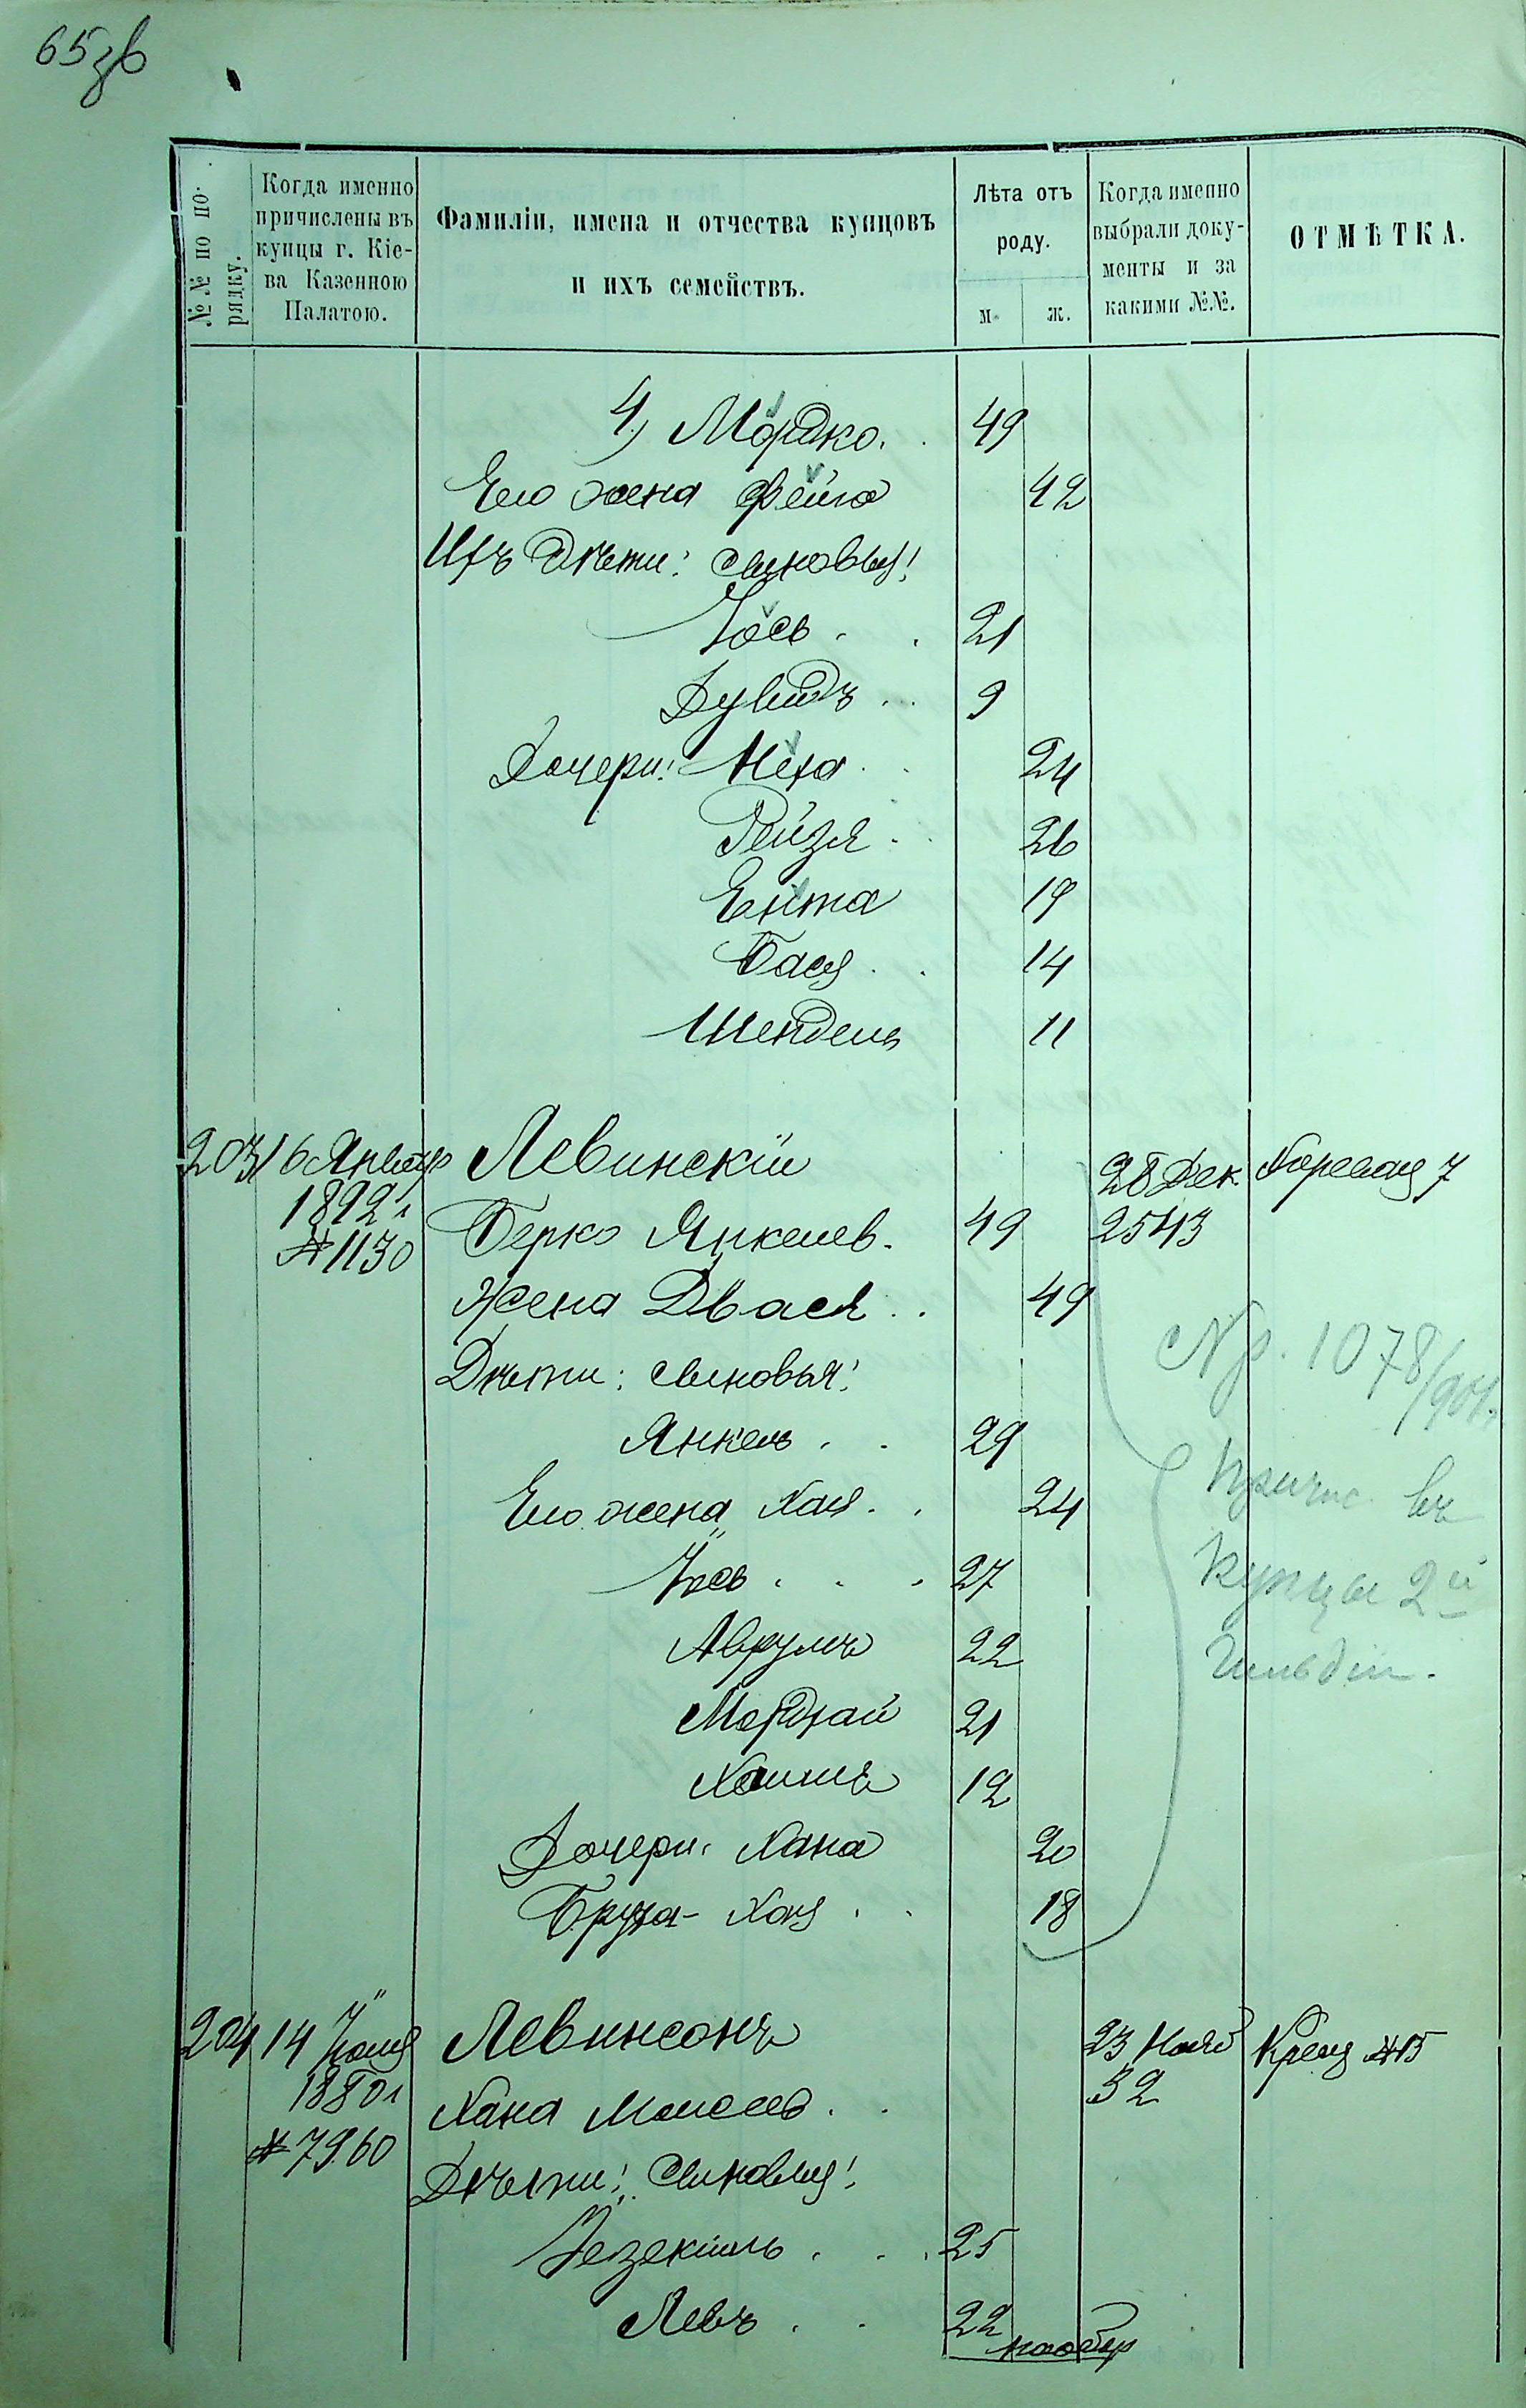 65зв
№№ по по-
рядку.
Когда именно
причислены въ
купцы г. Кіе-
ва Казенною
Палатою.
Фамиліи, имена и отчества купцовъ
и ихъ семействъ.
Лѣта отъ
роду.
м.
ж.
Когда именно
выбрали доку-
менты и за
какими №№.
ОТМѢТКА.
4) Мордко. 49
Его жена Фейга 42
Ихъ дѣти: сыновья:
Іось 21
Дувидъ 9
Дочери: Неха 24
Рейзя 26
Ента 19
Бася 14
Шендель 11
203 16 Январ Левинскій 28 Дек. Хоревая 7
1892 г
№ 1130 Берко Янкелев. 49 2543
Жена Двася 49
Дѣти: сыновья:
Янкель 29
Его жена Хая 24
Іось 27
Аврумъ 22
Мордхай 21
Хаимъ 12
Дочери: Хана 20
Бруха-Хая 18
Пр. 1078/901 г.
причис. въ
купцы 2й
гильдіи.
204 14 Іюля Левинсонъ 23 Нояб Крещ №15
1880 г
№ 7960 Хана Моисеев. 32
Дѣти: Сыновья:
Іезекіиль 25
Левъ 22
наобор